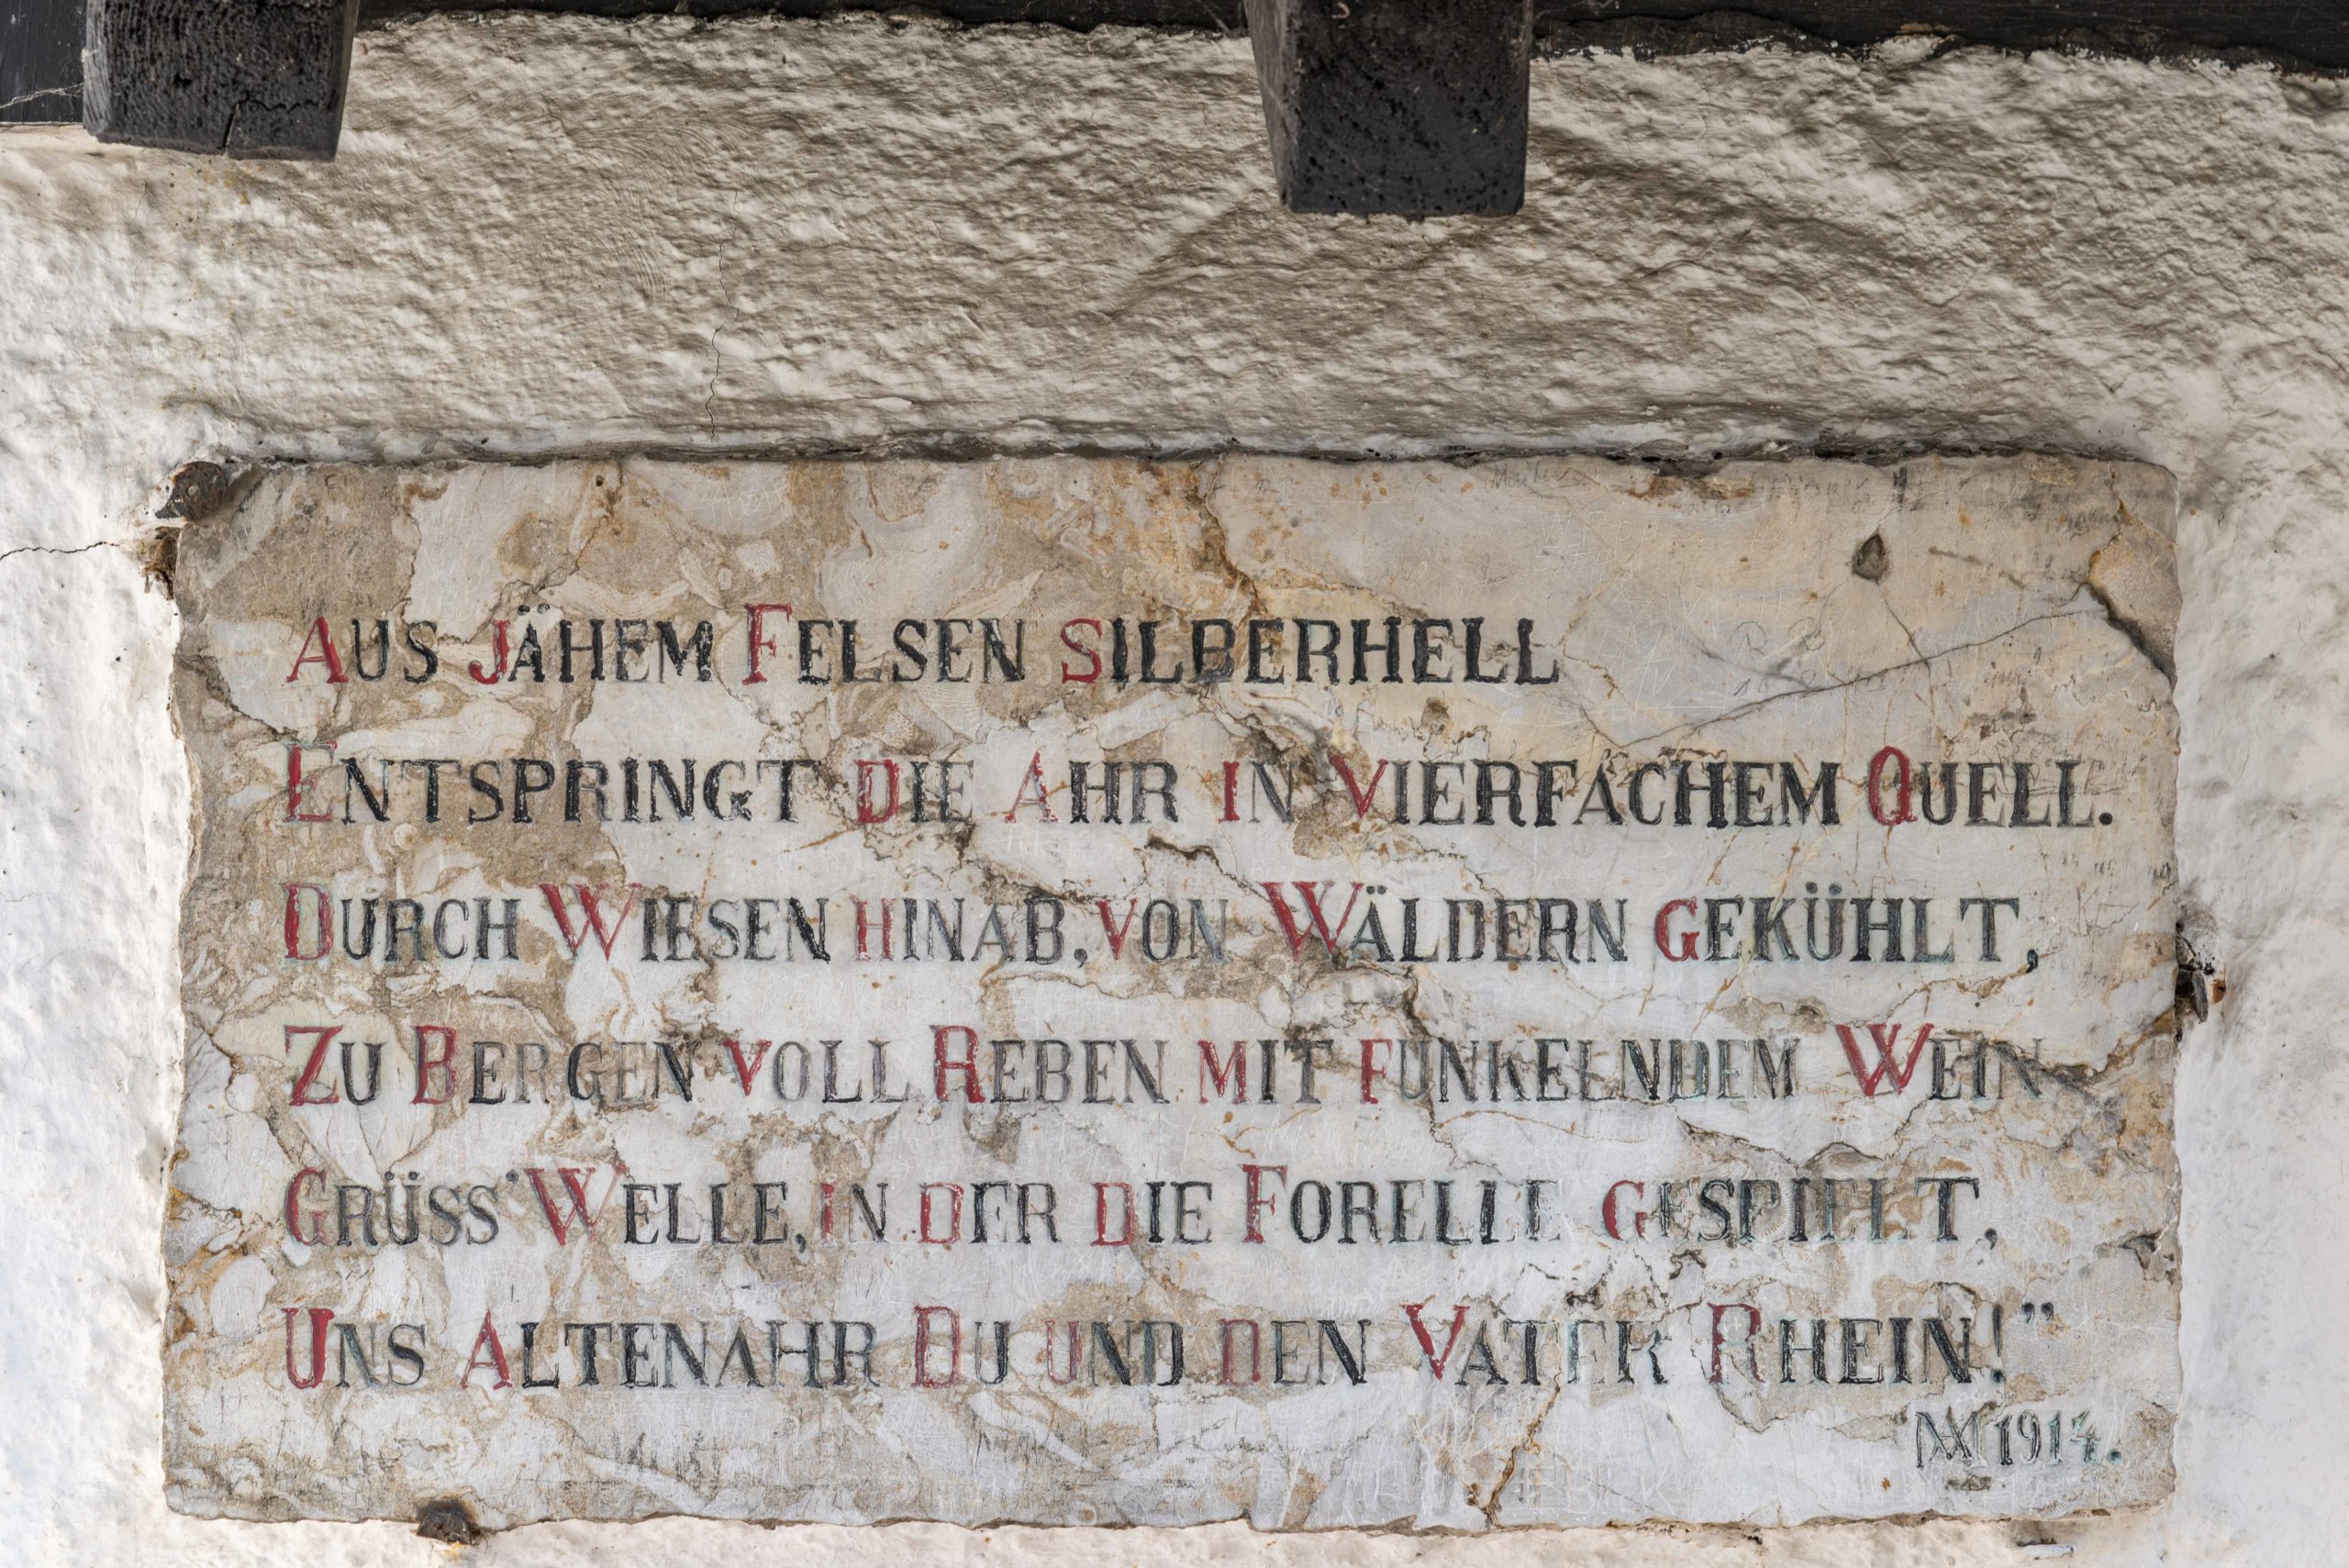 AUS JÄHEM FELSEN SILBERHELL
ENTSPRINGT DIE AHR IN VIERFACHEM QUELL.
DURCH WIESEN HINAB, VON WÄLDERN GEKÜHLT,
ZU BERGEN VOLL REBEN MIT FUNKELNDEM WEIN
GRÜSS' WELLE, IN DER DIE FORELLE GESPIELT,
UNS ALTENAHR DU UND DEN VATER RHEIN!”
1914.